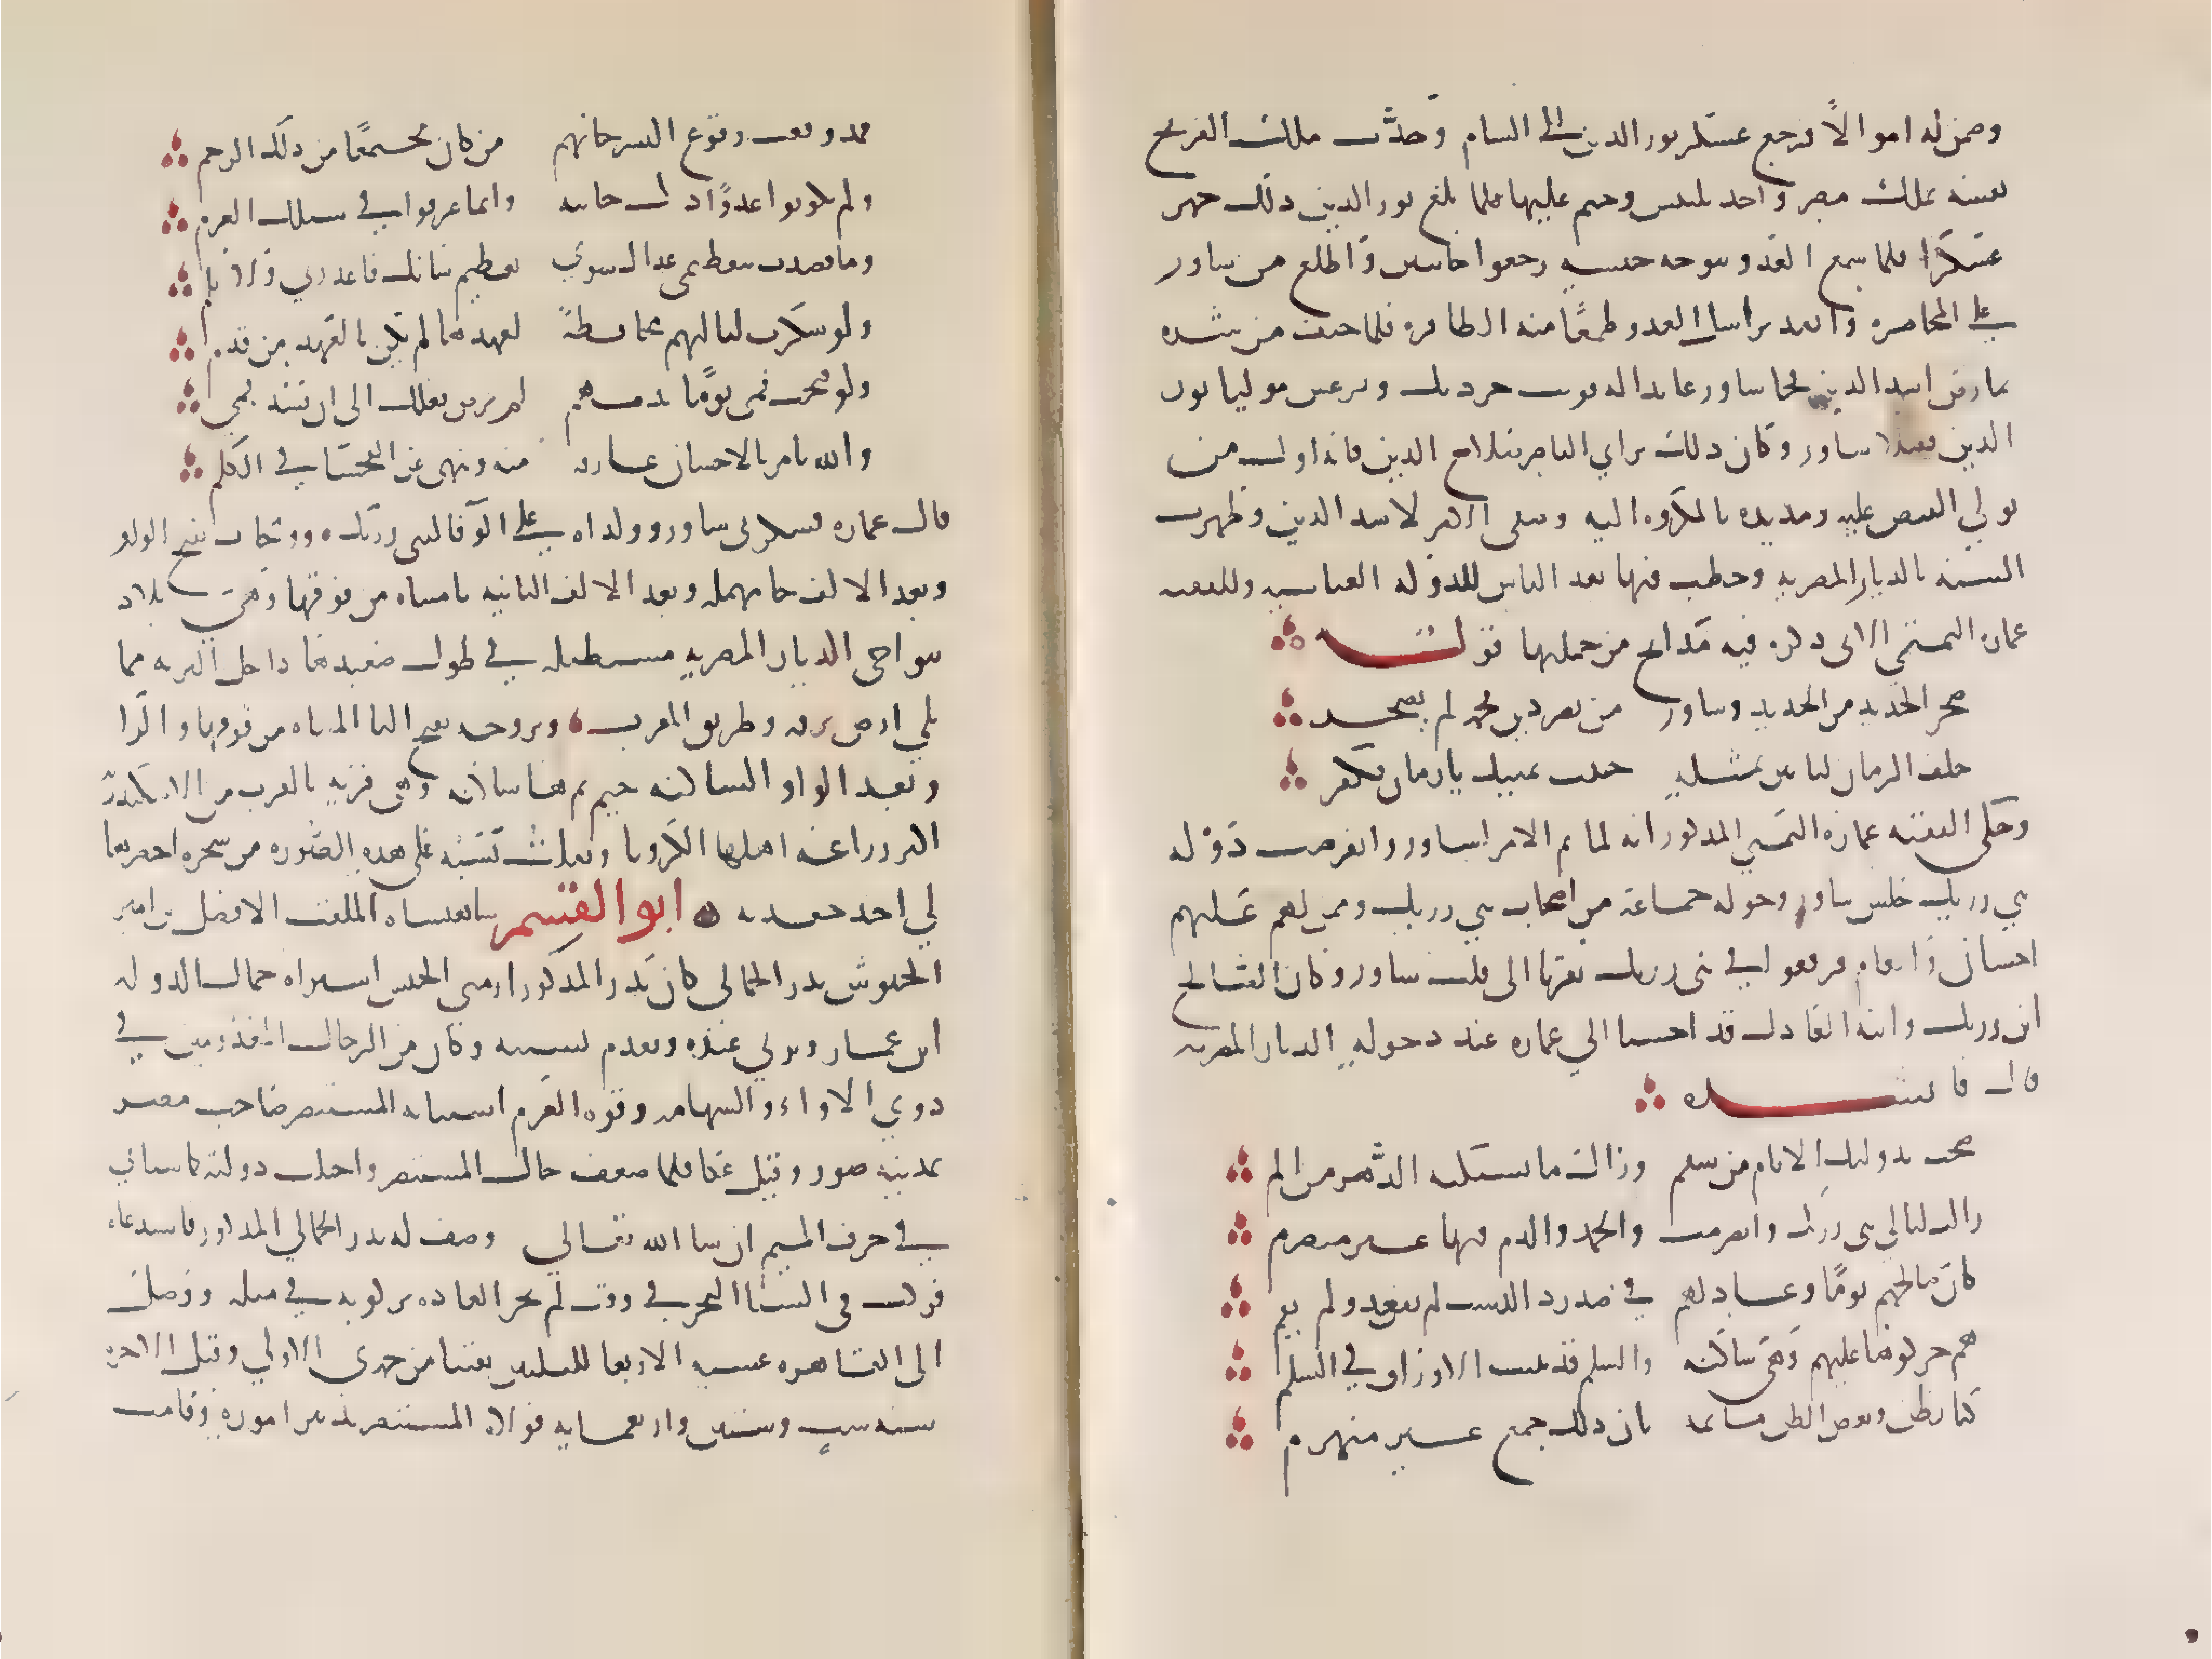 وضمن له اموالا فرجع عسكر نور الدين الى الشام وحدثت ملك الفرنج
نفسه بملك مصر واخذ بلبيس وخيم عليها فلما بلغ نور الدين ذلك جهز
عسكرا فلما سمع العدو بتوجه جيشه رجعوا خائبين واطلع من شاور
على المخامره وانفذ يراسل العدو طمعا منه في المظافره فلما خيف من شره
تمارض اسد الدين فجاه شاور عايدا له فوثب جرديك وبرغش موليا نور
الدين فقتلا شاور وكان ذلك براي الناصر صلاح الدين فانه اول من
تولى القبض عليه ومد يده بالمكروه اليه وصفى الامر لاسد الدين وظهرت
السنه بالديار المصريه وخطب فيها بعد الياس للدوله العباسيه وللفقيه
عماره اليمني الاتي ذكره فيه مدائح من جملتها قولـــــه
ضجر الحديد من الحديد وشاور من نصر دين محمد لم يضجـر
حلف الزمان لياتين بمثــله حنثت يمينك يا زمان فكفر
وحكى الفقيه عماره اليمني المذكور انه لما تم الامر لشاور وانقرضت دوله
بني رزيك جلس شاور وحوله جماعة من اصحاب بني رزيك وممن لهم عليهم
احسان وانعام فوقعوا في بني رزيك تقربا الى قلب شاور وكان الصالح
ابن رزيك وابنه العادل قد احسنا الي عماره عند دخوله الديار المصريه
قال فانشـــده
صحت بدولتك الايام من سقم وزال ما يشتكيه الدهر من الم
زالت ليالي بني رزيك وانصرمت والحمد والذم فيها غير منصرم
كان صالحهم يوما وعادلهم في صدر ذا الدست لم يقعد ولم يقم
هم حركوها عليهم وهي ساكنه والسلم قد تنبت الاوراق في السلم
كنا نظن وبعض الظن ماثمه بان ذلك جمع غير منهزم
فمذ وقعت وقوع النسر خانهم من كان مجتمعا من ذلك الرخم
ولم يكونوا عدوا ذل جانبه وانما غرقوا في سيلك العرم
وما قصدت بتعظيمي عداك سوى تعظيم شانك فاعذرني ولا تلم
ولو شكرت لياليهم محافظة لعهدها لم يكن بالعهد من قدم
ولو فتحت فمي يوما بذمهم لم يرض فضلك الى ان تسد فمي
والله يامر بالاحسان عارفه منه وينهى عن الفحشا في الكلم
قال عماره فشكرني شاور وولداه على الوفا لبني رزيك ووتحات بفتح الواو
وبعد الالف حا مهمله وبعد الالف الثانيه تا مثناه من فوقها وهي بلاد
بنواحي الديار المصريه مستطيله في طول صعيدها داخل البريه مما
يلي ارض برقه وطريق المغرب وتروجه بفتح التا المثناه من فوقها والرا
وبعد الواو الساكنه جيم ثم هما ساكنه وهي قريه بالقرب من الاسكندريه
اكثر زراعه اهلها الكرويا ونقلت نسبه على هذه الصوره من شجره احضرها
لي احد حفدته ابو القسم شاهنشاه الملقب الافضل بن امير
الجيوش بدر الجمالي كان بدر المذكور ارمني الجنس اشتراه جمال الدوله
ابن عمار وتربى عنده وتقدم بسببه وكان من الرجال المعدودين في
ذوي الاراء والشهامه وقوه العزم استنابه المستنصر صاحب مصر
بمدينه صور وقيل عكا فلما ضعف حال المستنصر واختلت دولته كما سياتي
في حرف الميم ان شا الله تعالى وصف له بدر الجمالي المذكور فاستدعاه
فركب في الشتا البحر في وقت لم تجر العاده بركوبه في مثله ووصل
الى القاهره عشيه الاربعا لليلتين بقيتا من جمدى الاولى وقيل الاخره
سنه ست وستين واربعمايه فولاه المستنصر تدبير اموره وقامت